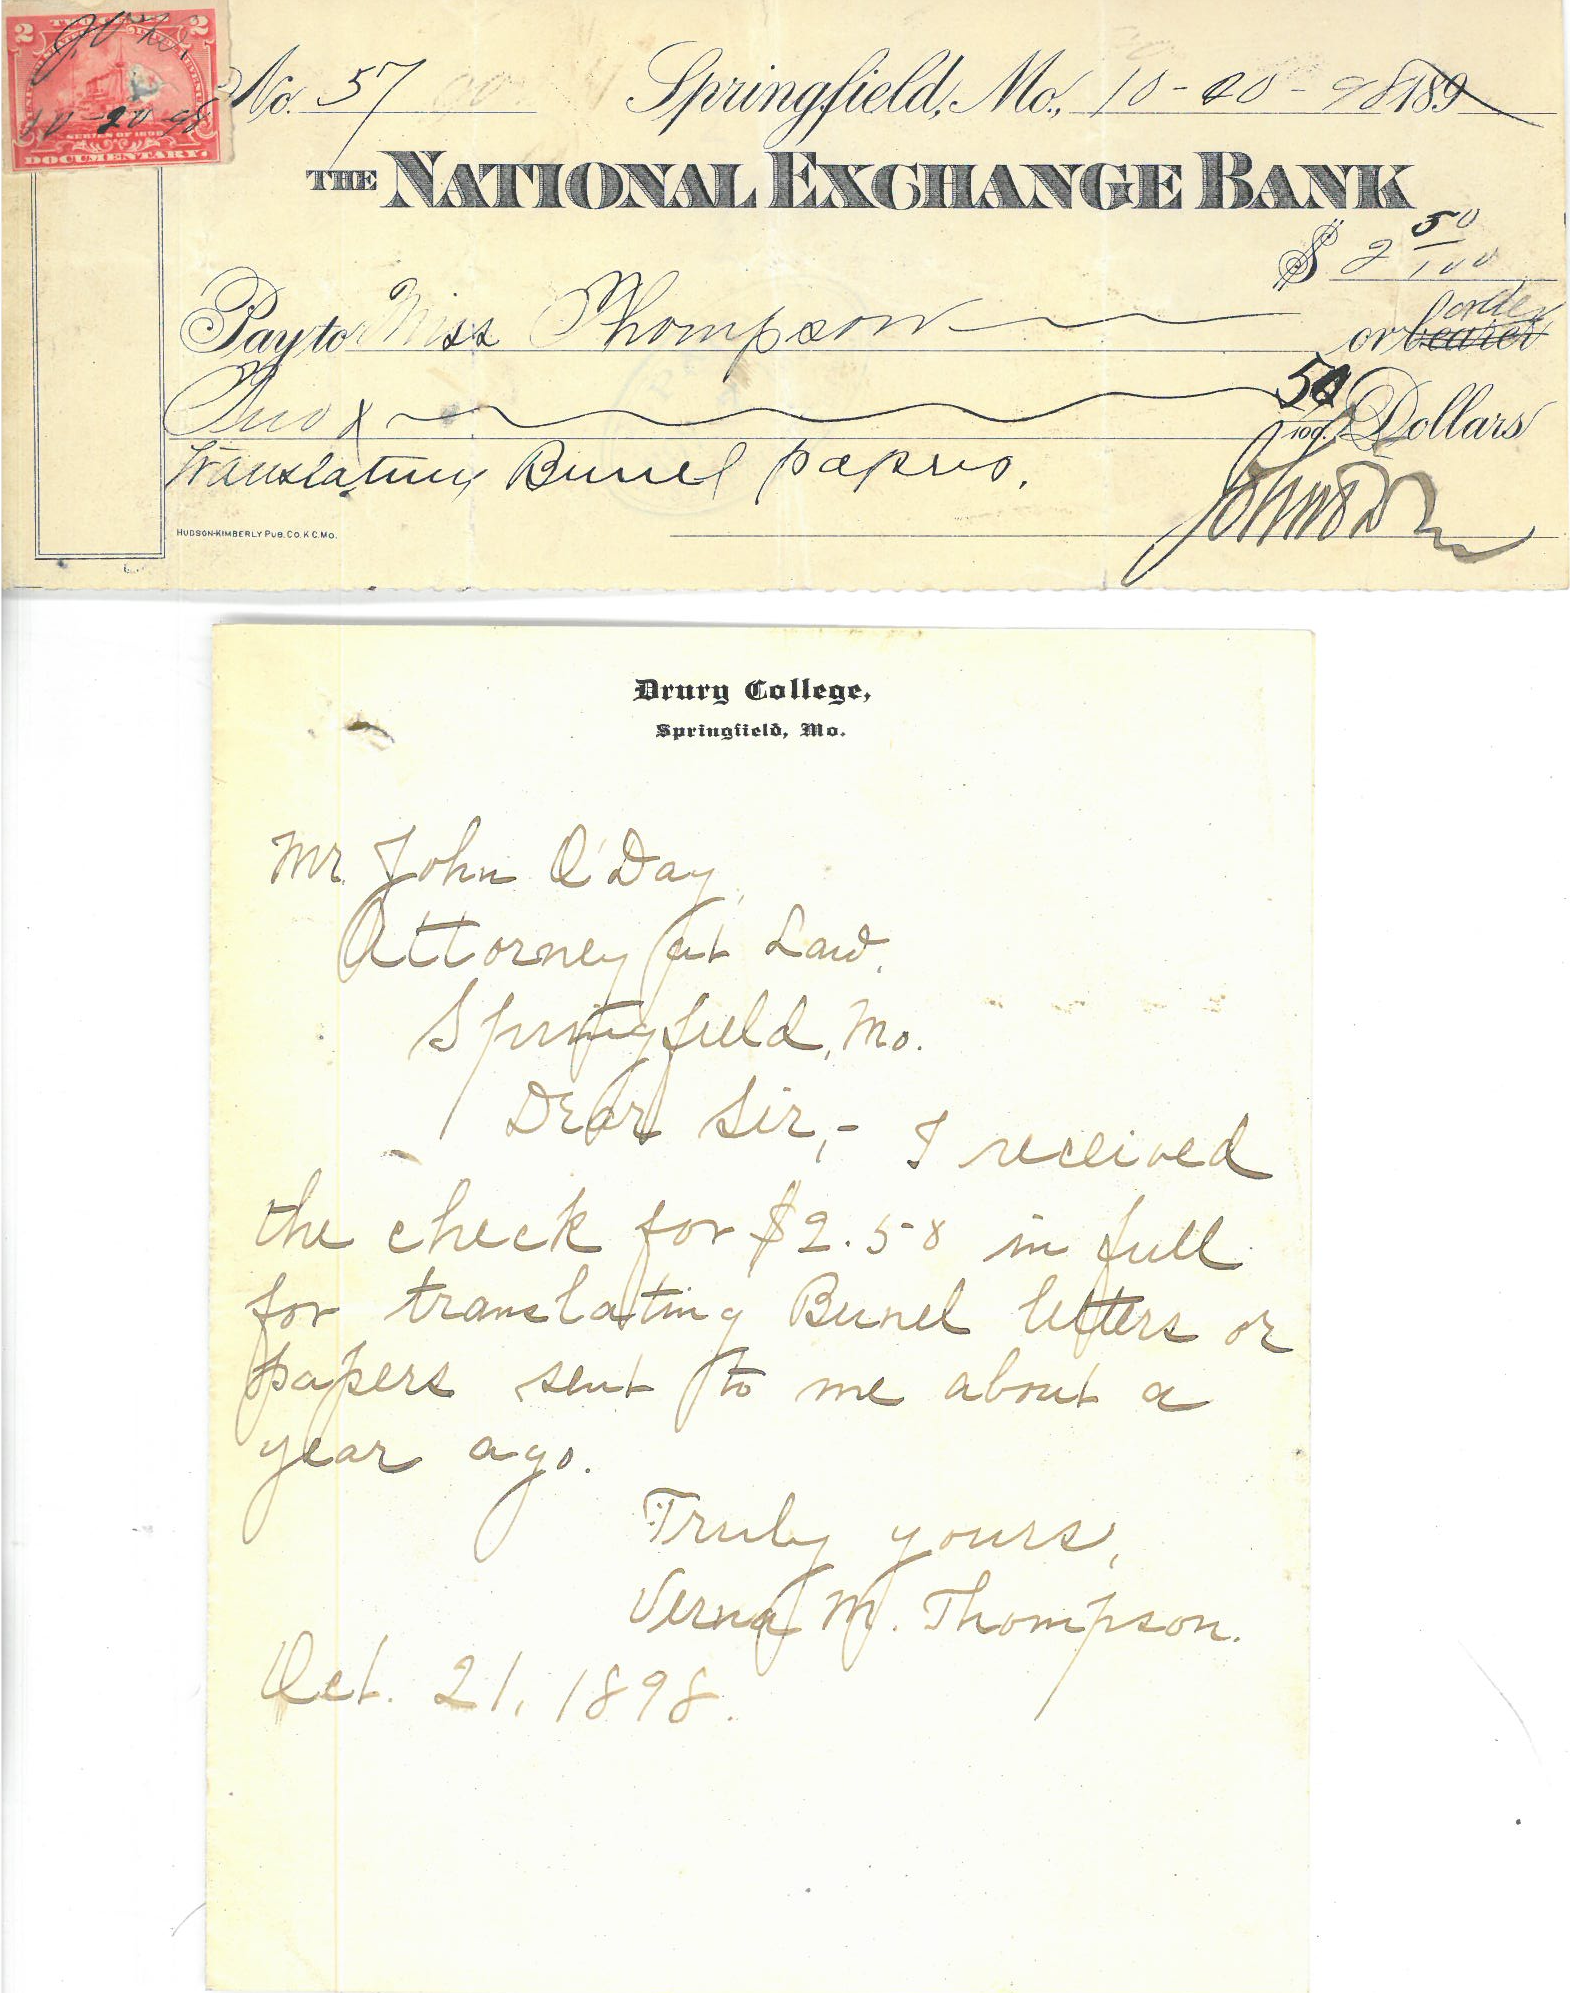 2 TWO CENTS 2
SERIES OF 1898
DOCUMENTARY.
10-20-98
No. 57
Springfield, Mo., 10-20-98 189
THE NATIONAL EXCHANGE BANK
$ 2 50/100
Pay to Miss Thompson or bearer order
Two & 50/100 Dollars
Translating Bunel papers.
HUDSON-KIMBERLY PUB. CO. K.C. MO.
John O'Day
Drury College,
Springfield, Mo.
Mr. John O'Day,
Attorney at Law,
Springfield, Mo.
Dear Sir,- I received
the check for $2.50 in full
for translating Bunel letters or
papers sent to me about a
year ago.
Truly yours,
Verna M. Thompson.
Oct. 21, 1898.